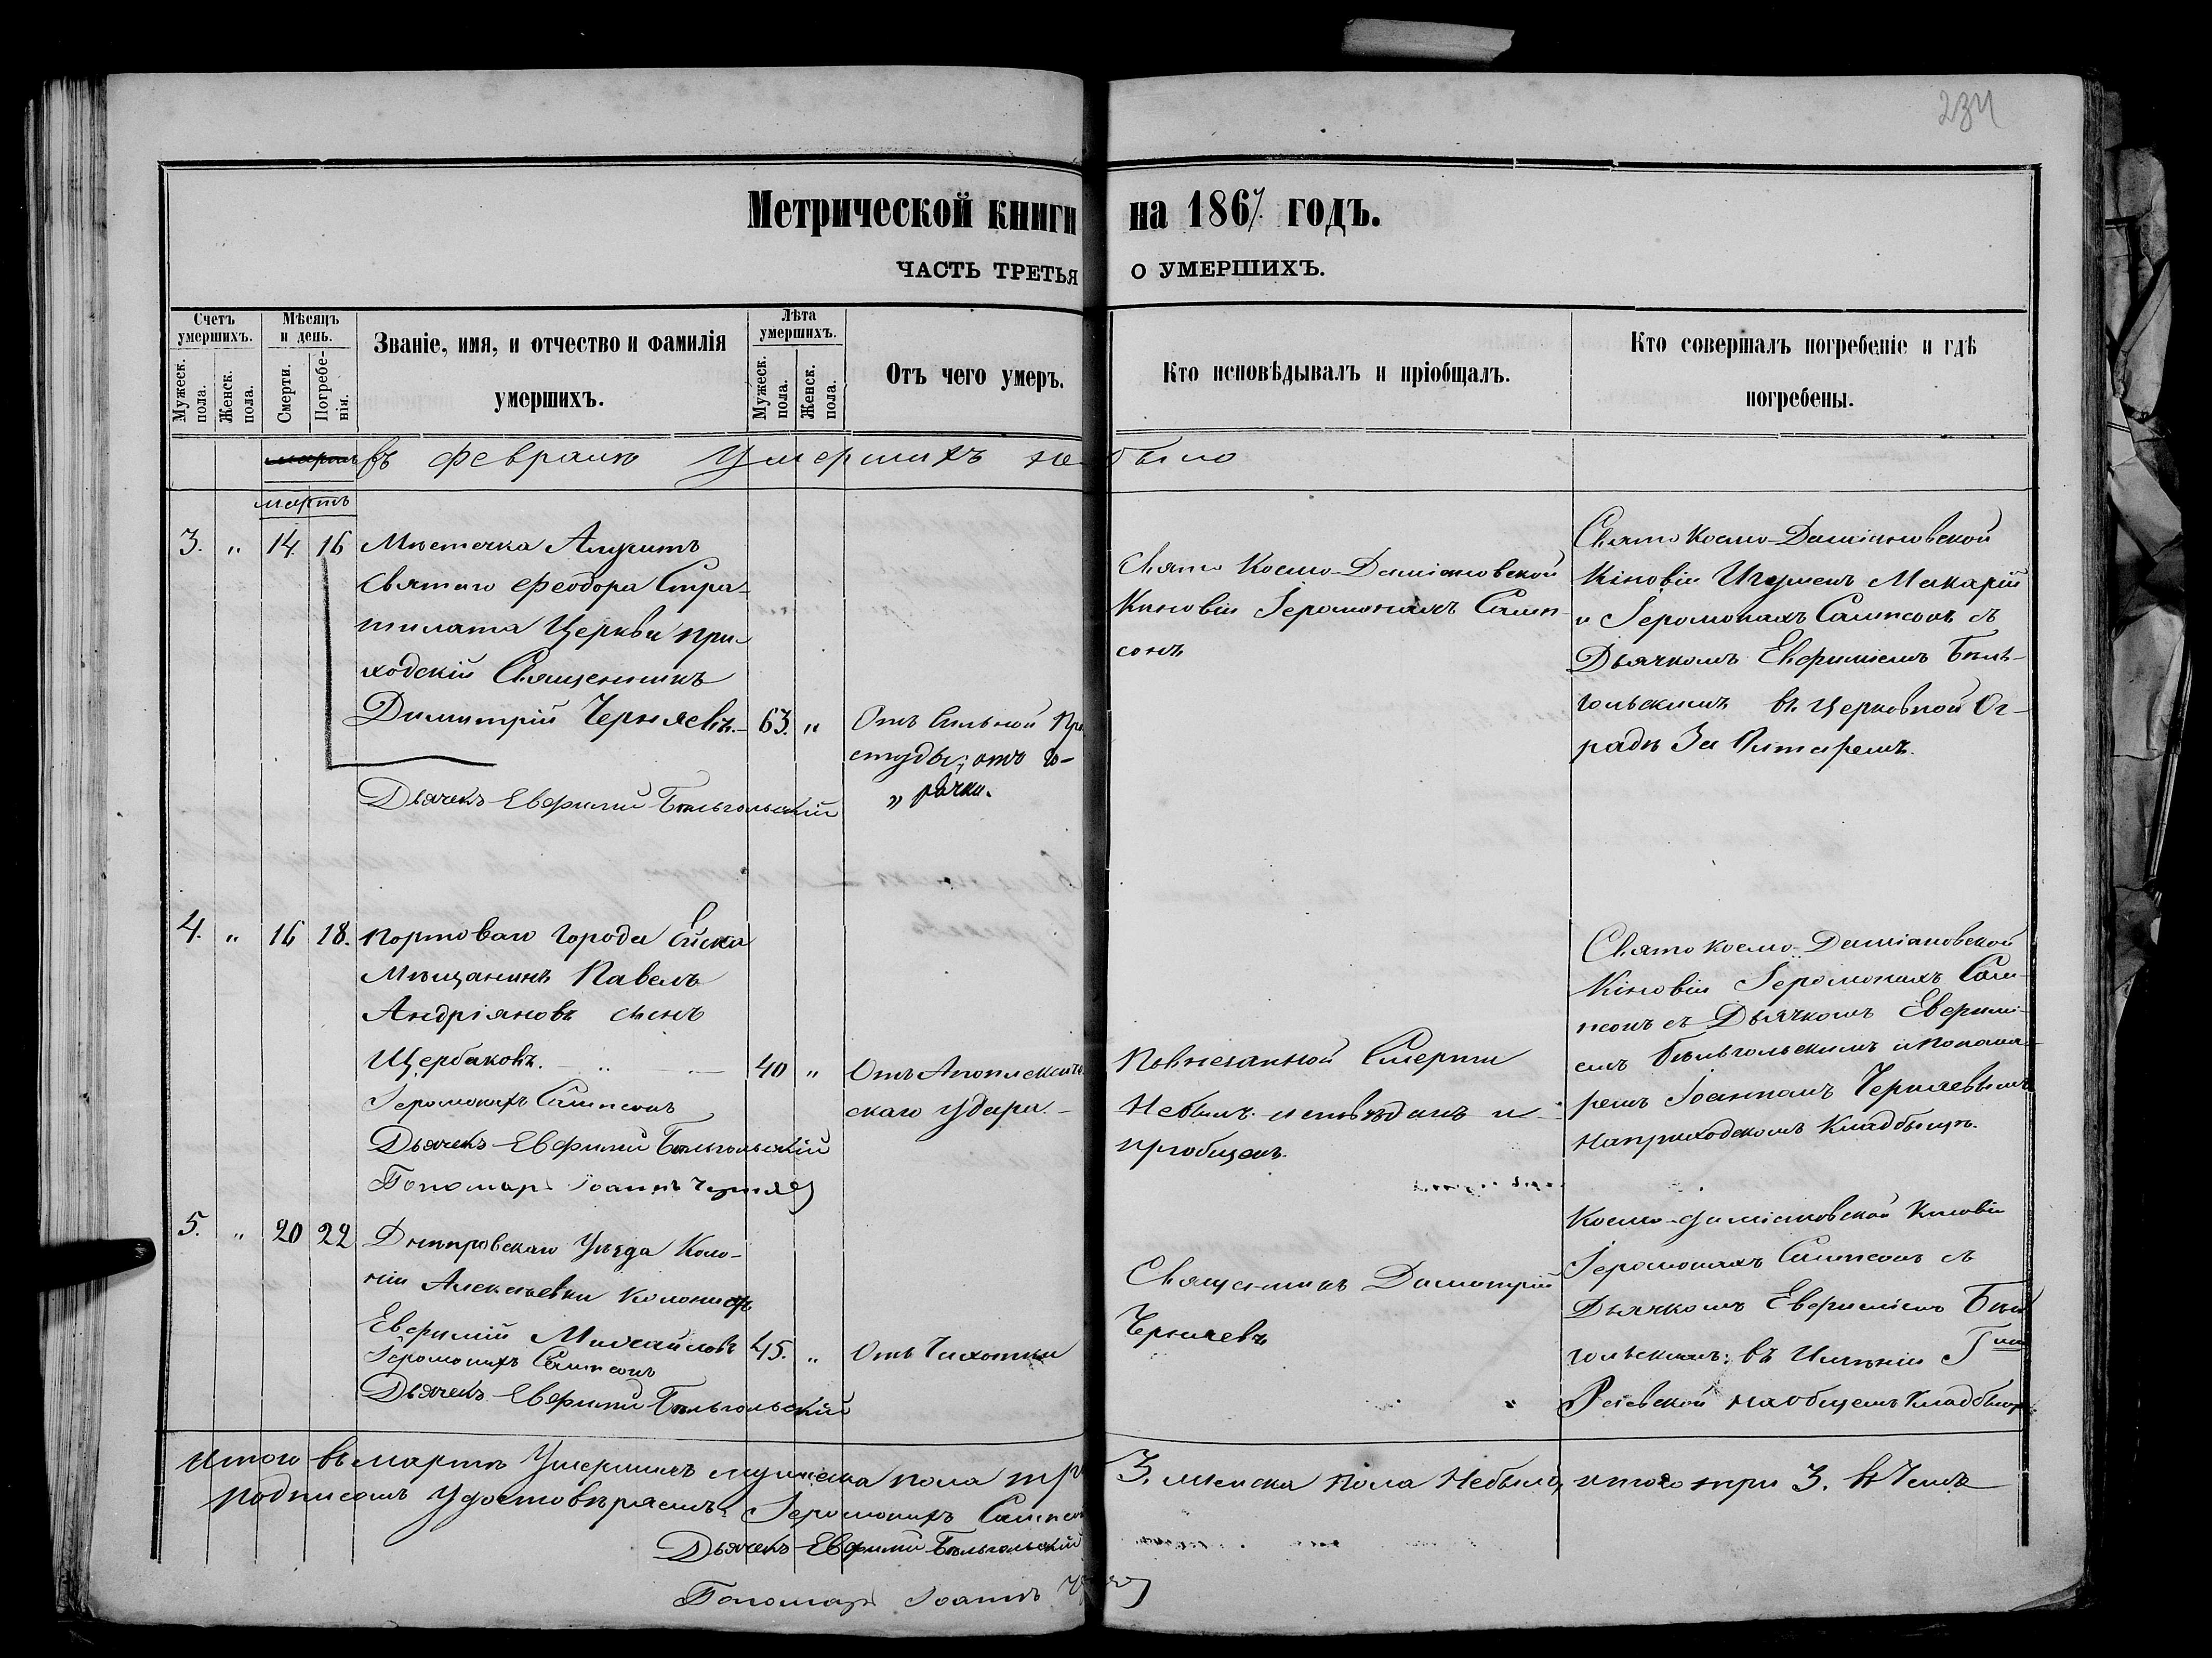 234
Метрической книги на 1867 годъ.
ЧАСТЬ ТРЕТЬЯ О УМЕРШИХЪ.
Счетъ умершихъ.
Мужеск. пола.
Женск. пола.
Мѣсяцъ и день.
Смерти.
Погребе-
нія.
Званіе, имя, и отчество и фамилія
умершихъ.
Лѣта умершихъ.
Мужеск. пола.
Женск. пола.
Отъ чего умеръ.
Кто исповѣдывалъ и пріобщалъ.
Кто совершалъ погребеніе и гдѣ
погребены.
мартъ въ февралѣ умершихъ не было
мартъ
3. „ 14. 16 Мѣстечка Алушть
Святаго Феодора Стра-
тилата Церкви при-
ходскій Священникъ
Димитрій Черняевъ. 63. „
Отъ сильной Про
студы; отъ го-
„ рячки.
Дьячекъ Евфимій Бѣльгольскій
Свято Космо-Даміановской
Киновіи Іеромонахъ Самп-
сонъ
Свято Космо-Даміановской
Кіновіи Игуменъ Макарій
и Іеромонахъ Сампсонъ съ
Дьячкомъ Евфиміемъ Бѣль-
гольскимъ въ Церковной Ог-
радѣ За Алтаремъ.
4. „ 16 18. Портоваго города Ейска
Мѣщанинъ Павелъ
Андріяновъ сынъ
Щербаковъ. 40 „
Отъ Апоплексиче
скаго удара.
Іеромонахъ Сампсонъ
Дьячекъ Евфимій Бѣльгольскій
Пономарь Іоаннъ Черняев
Повнезапной Смерти
Небылъ исповѣданъ и
пріобщенъ.
Свято Космо-Даміановской
Кіновіи Іеромонахъ Сам-
псонъ съ Дьячкомъ Евфимі-
емъ Бѣльгольскимъ и Понома-
ремъ Іоанномъ Черняевымъ
Наприходскомъ Кладбищѣ.
5. „ 20 22 Днѣпровскаго Уѣзда Коло-
ніи Алексѣевки Колонистъ
Евфимій Михайловъ 45. „
Отъ Чахотки
Іеромонахъ Сампсонъ
Дьячекъ Евфимій Бѣльгольскій
Священникъ Димитрій
Черняевъ
Космо-Даміановской Киновіи
Іеромонахъ Сампсонъ съ
Дьячкомъ Евфиміемъ Бѣль
гольскимъ: въ Имѣніи
наобщемъ Кладбищѣ
Итого въ Мартѣ Умершихъ мужеска пола три 3. женска пола Небыло, итого три 3. въ Чемъ
подписомъ Удостовѣряемъ. Іеромонахъ Сампсон
Дьячекъ Евфимій Бѣльгольскій
Пономарь Іоаннъ